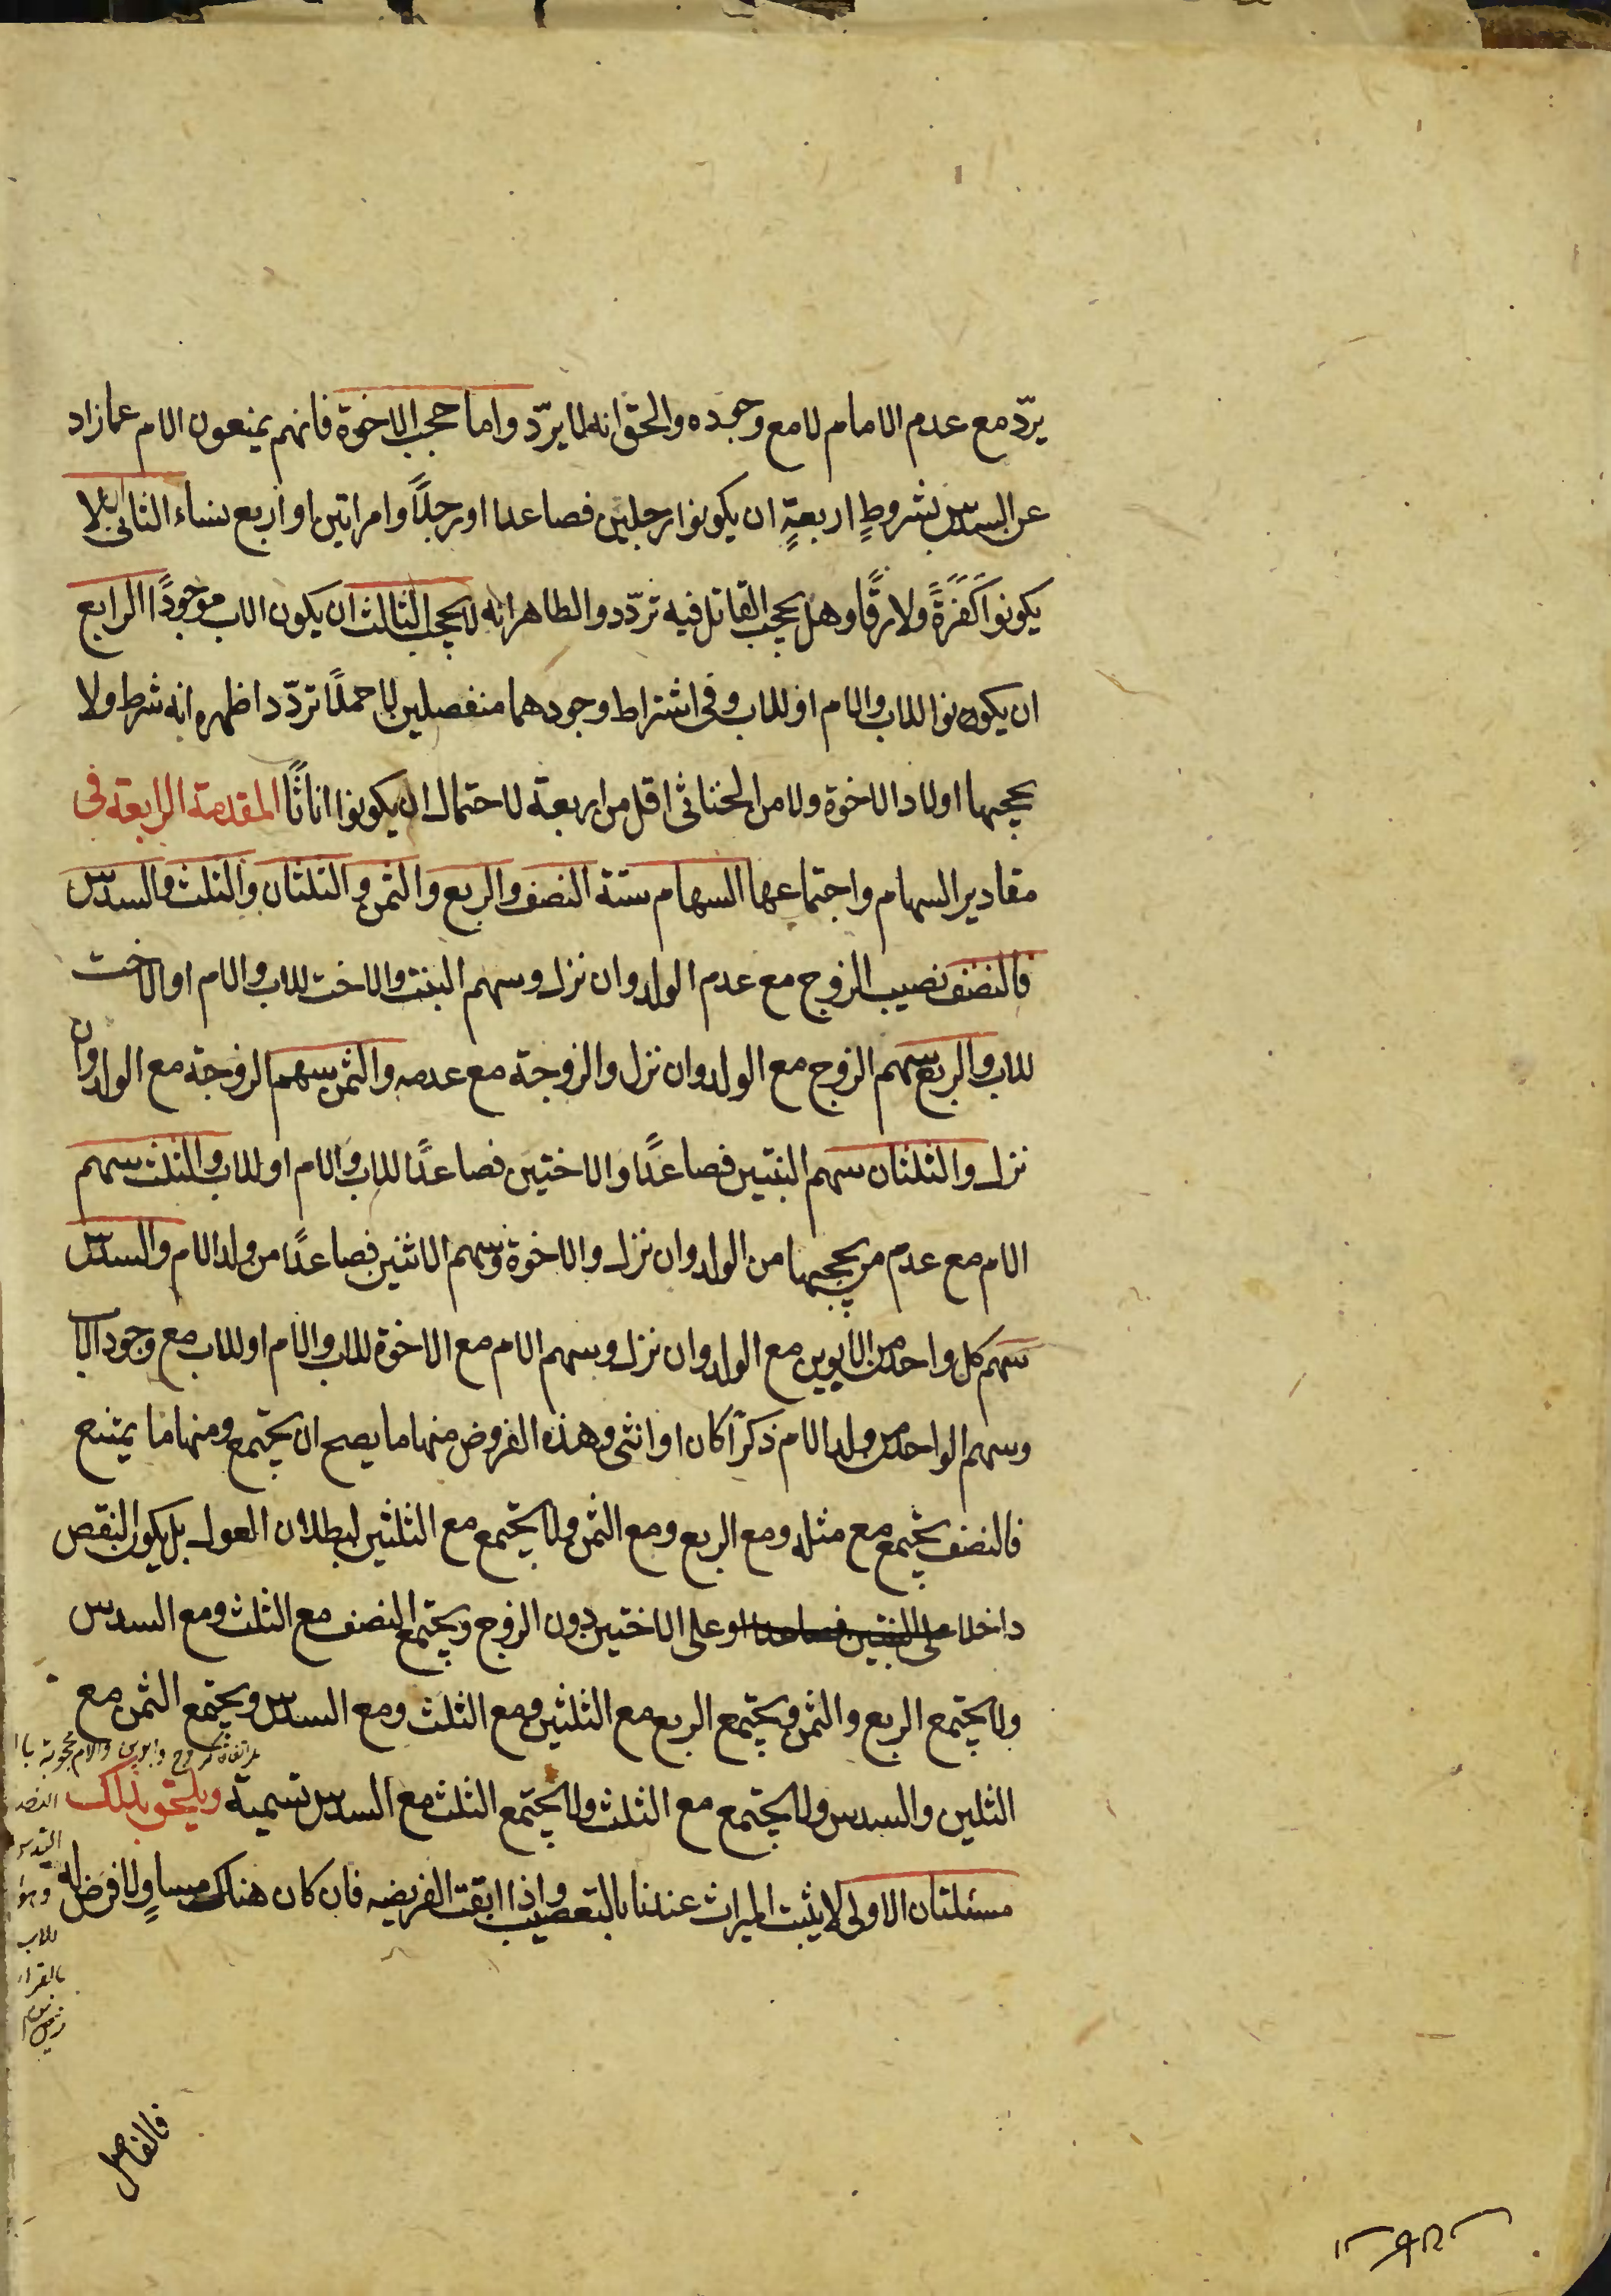 يردّ مع عدم الامام لا مع وجوده والحق انه لا يردّ واما حجب الاخوة فانهم يمنعون الام عما زاد
عن السدس بشروطٍ اربعةٍ ان يكونوا رجلين فصاعدا او رجلًا وامراتين او اربع نساء الثاني الا
يكونوا كَفَرَةً ولا رقًّا وهل يحجب القاتل فيه تردّد والظاهر انه لا يحجب الثالث ان يكون الاب موجودًا الرابع
ان يكونوا للاب والام او للاب وفي اشتراط وجودهما منفصلين لا حملًا تردّد اظهره انه شرط ولا
يحجبها اولاد الاخوة ولا من الخناثى اقل من اربعة لاحتمال ان يكونوا اناثًا المقدمة الرابعة في
مقادير السهام واجتماعها السهام ستة النصف والربع والثمن والثلثان والثلث والسدس
فالنصف نصيب الزوج مع عدم الولد وان نزل وسهم البنت والاخت للاب والام او الاخت
للاب والربع سهم الزوج مع الولد وان نزل والزوجة مع عدمه والثمن سهم الزوجة مع الولد وان
نزل والثلثان سهم البنتين فصاعدًا والاختين فصاعدًا للاب والام او للاب والثلث سهم
الام مع عدم من يحجبها من الولد وان نزل والاخوة وسهم الاثنين فصاعدًا من ولد الام والسدس
سهم كل واحد من الابوين مع الولد وان نزل وسهم الام مع الاخوة للاب والام او للاب مع وجود الاب
وسهم الواحد من ولد الام ذكرًا كان او انثى وهذه الفروض منها ما يصح ان يجتمع ومنها ما يمتنع
فالنصف يجتمع مع مثله ومع الربع ومع الثمن ولا يجتمع مع الثلثين لبطلان العول بل يكون النقص
داخلا على البنتين فصاعدا او على الاختين دون الزوج ويجتمع النصف مع الثلث ومع السدس
ولا يجتمع الربع والثمن ويجتمع الربع مع الثلثين ومع الثلث ومع السدس ويجتمع الثمن مع
الثلين والسدس ولا يجتمع مع الثلث ولا يجتمع الثلث مع السدس تسمية ويلحق بذلك
مسئلتان الاولى لا يثبت الميراث عندنا بالتعصيب واذا ابقت الفريضه فان كان هناك مساوٍ لا فرض له
وابوين والام محجوبة
للاب
فالفاضل